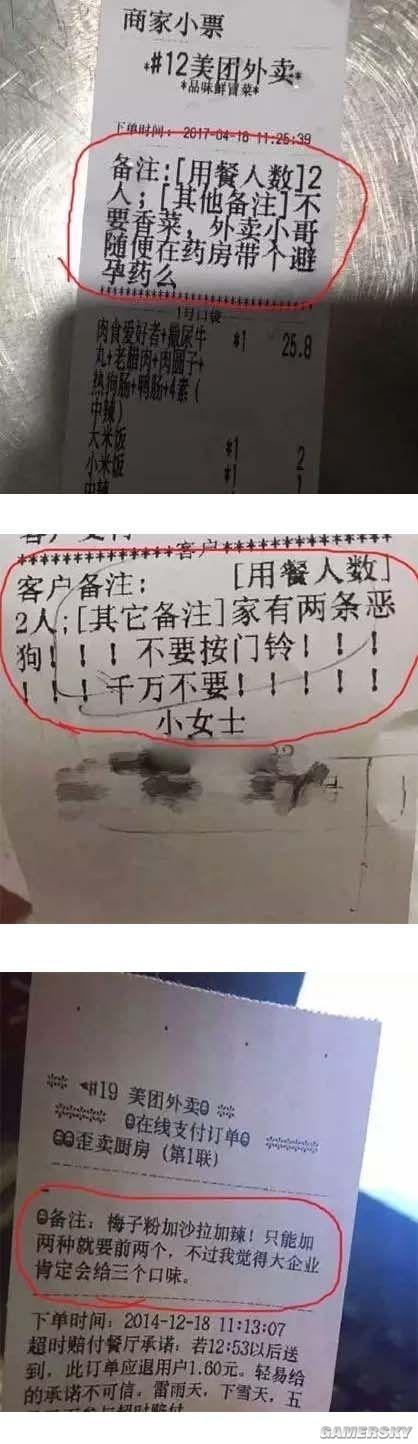 商家小票
*#12美团外卖*
*品味鲜冒菜*
下单时间: 2017-04-18 11:25:39
备注:[用餐人数]2
人; [其他备注]不
要香菜, 外卖小哥
随便在药房带个避
孕药么
1号口袋
肉食爱好者+撒尿牛 *1 25.8
丸+老腊肉+肉圆子+
热狗肠+鸭肠+4素(
中辣)
大米饭 *1 2
小米饭 *1 1
中辣
客户
客户备注: [用餐人数]
2人;[其它备注]家有两条恶
狗！！！不要按门铃！！！
！！！千万不要！！！！！
小女士
#19 美团外卖
在线支付订单
歪卖厨房 (第1联)
备注: 梅子粉加沙拉加辣! 只能加
两种就要前两个, 不过我觉得大企业
肯定会给三个口味。
下单时间: 2014-12-18 11:13:07
超时赔付餐厅承诺: 若12:53以后送
到, 此订单应退用户1.60元。轻易给
的承诺不可信, 雷雨天, 下雪天, 五
GAMERSKY